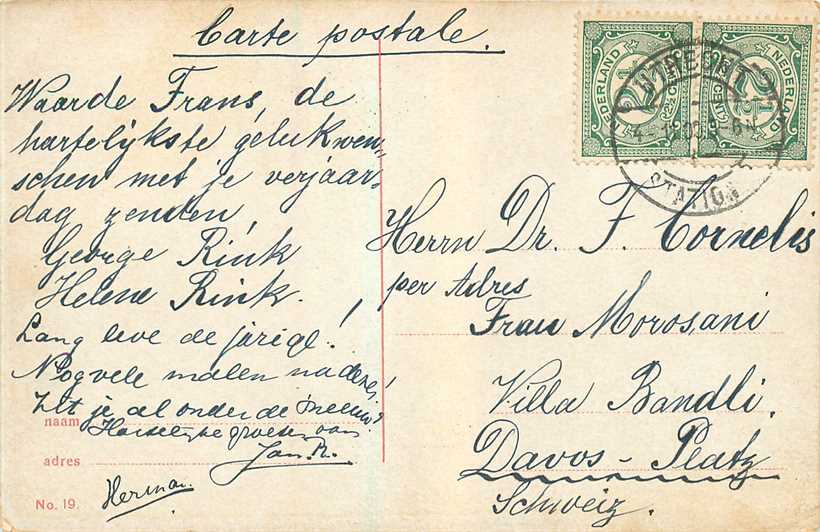 Carte postale.
Waarde Frans, de
hartelijkste gelukwen-
schen met je verjaar-
dag zenden,
George Rink
Helene Rink.
Lang leve de jarige!
Nog vele malen na deze!
Zit je al onder de sneeuw?
naam
Hartelijke groeten van
adres
Jan R.
Herman.
No. 19.
NEDERLAND
2½ CENT
NEDERLAND
2½ CENT
UTRECHT
STATION
Herrn Dr. F. Cornelis
per Adres
Frau Morosani
Villa Bandli.
Davos-Platz
Schweiz.